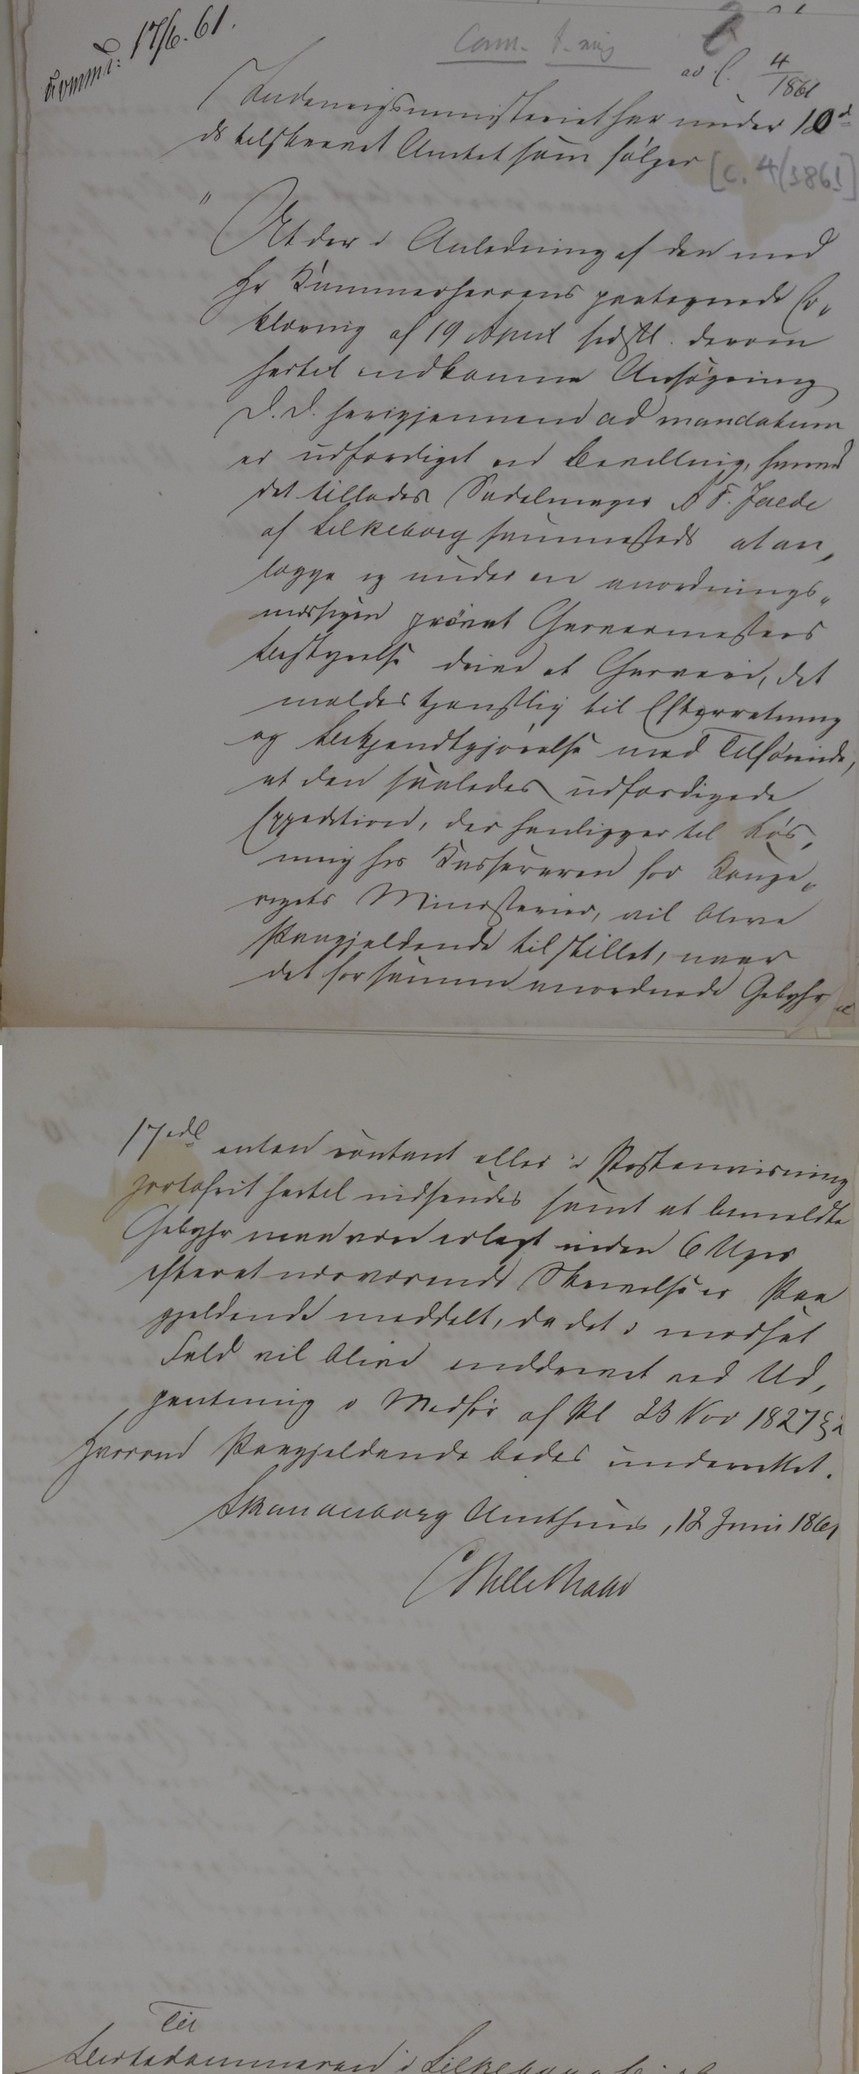 Kommu: 17/6.61.
Com. d. mig
ad C. 4/1861
Indenrigsministeriet har under 10d
ds tilskrevet Amtet som følger [C. 4/1861]
"At der i Anledning af den med
Hr Kammerherrens paategnede Er„
klæring af 19 April sidstl. derom
hertil indkomne Ansøgning
D.D. herigjennem ad mandatum
er udfærdiget en Bevilling, hvorved
det tillades Sadelmager F. Jaede
af Silkeborg sammesteds at an„
lægge og under en anordnings„
mæssigen prøvet Garvermesters
Bestyrelse drive et Garveri, det
meldes tjenstlig til Efterretning
og Bekjendtgjørelse med Tilføiende,
at den saaledes udfærdigede
Expedition, der henligger til Løs„
ning hos Kassereren for Konge„
rigets Ministerier, vil blive
Paagjældende tilstillet, naar
det for samme anordnede Gebyhr
17 rdl enten contant eller i Postanvisning
portofrit hertil indsendes samt at bemeldte
Gebyhr maa være erlagt inden 6 Uger
efterat nærværende Skrivelse er Paa
gjeldende meddelt, da det i modsat
Fald vil blive inddrevet ved Ud„
pantning i Medfør af Pl 23 Nov 1827 §
hvorom Paagjeldende bedes underrettet.
Skanderborg Amthuus, 12 Juni 1861
Til
Birkedommeren i Silkeborg Birk